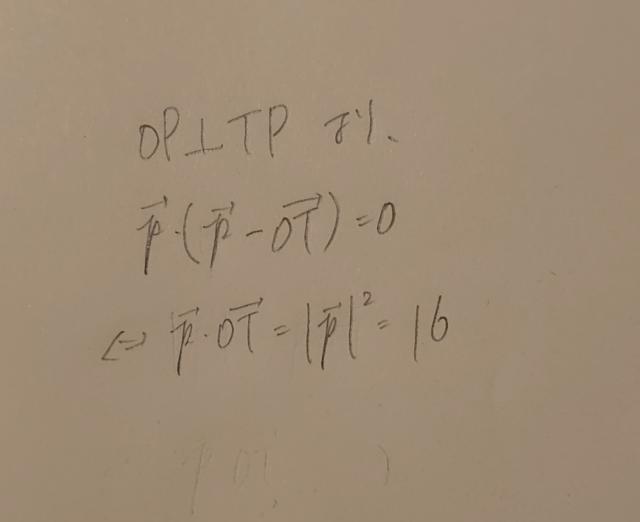 OP⊥TP より、
$\vec{p}\cdot(\vec{p}-\overrightarrow{OT})=0$
$\Leftrightarrow \vec{p}\cdot\overrightarrow{OT}=|\vec{p}|^2=16$